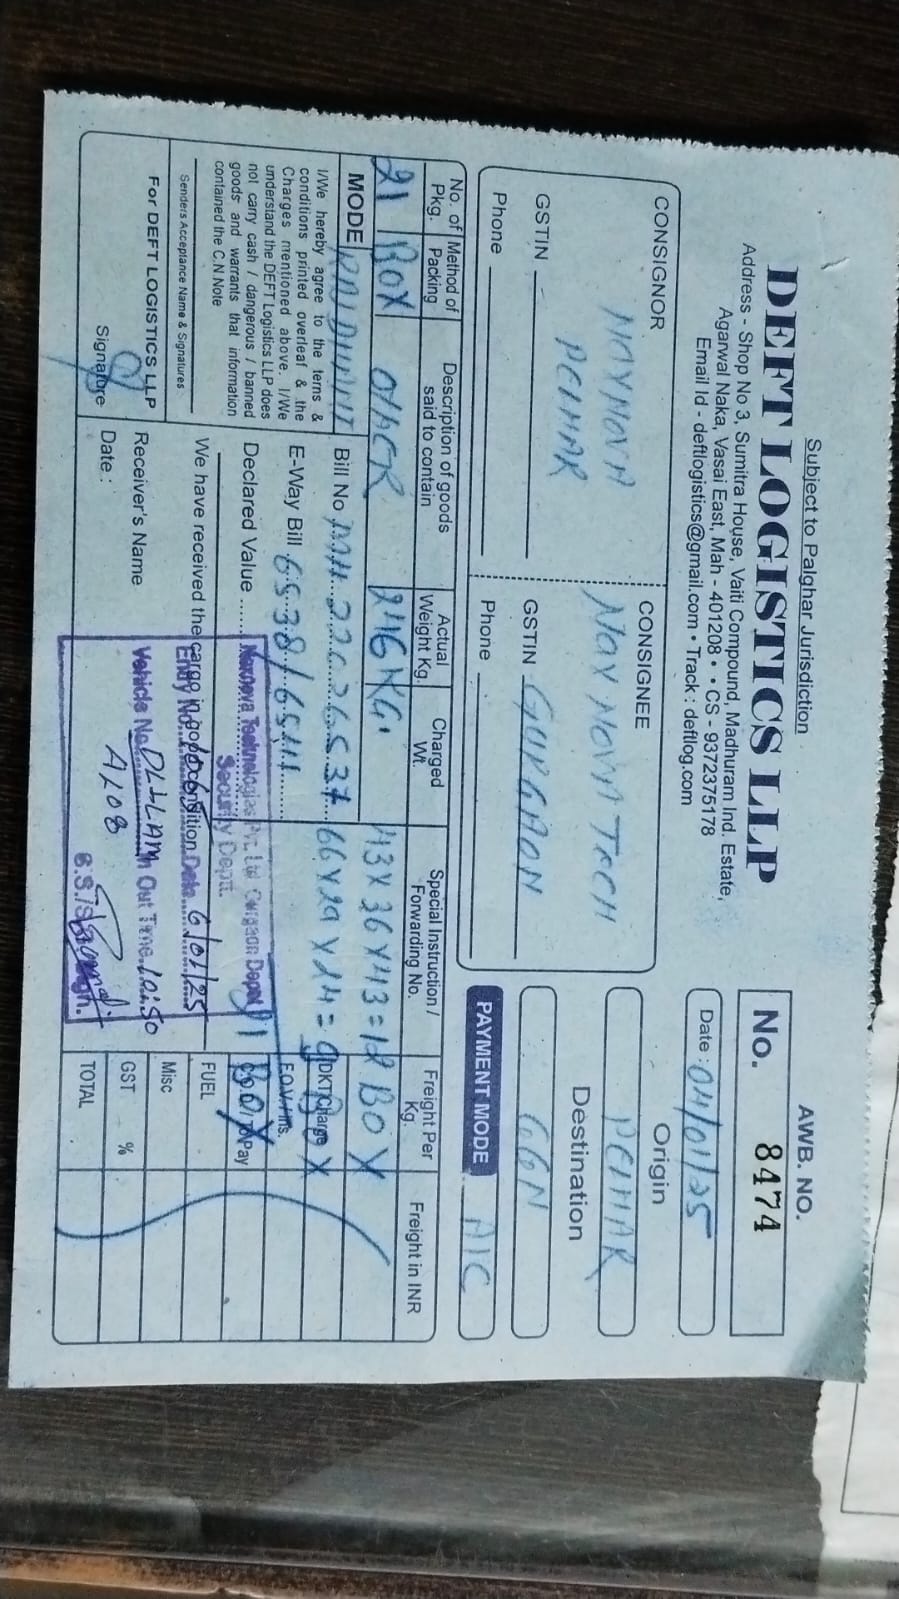 Subject to Palghar Jurisdiction
DEFT LOGISTICS LLP
Address - Shop No 3, Sumitra House, Vaiti Compound, Madhuram Ind. Estate,
Agarwal Naka, Vasai East, Mah - 401208 • • CS - 9372375178
Email Id - deftlogistics@gmail.com • Track : deftlog.com
AWB. NO.
No. 8474
Date : 04/01/25
CONSIGNOR
PELHAR
GSTIN
Phone
CONSIGNEE
NAXNOVA TECH
GURGAON
GSTIN
Phone
Origin
PELHAR
Destination
GGN
PAYMENT MODE A/C
No. of Pkg.
Method of Packing
Description of goods said to contain
Actual Weight Kg.
Charged Wt.
Special Instruction / Forwarding No.
Freight Per Kg.
Freight in INR
21 BOX OTHER 246 KG. 43 X 36 X 43 = 12 BOX
66 X 29 X 24 = 9 BOX
MODE
Bill No MH22026537
E-Way Bill 6538/6541
Declared Value
I/We hereby agree to the terns &
conditions printed overleaf & the
Charges mentioned above. I/We
understand the DEFT Logistics LLP does
not carry cash / dangerous / banned
goods and warrants that information
contained the C.N.Note
Senders Acceptance Name & Signatures
For DEFT LOGISTICS LLP
Signature
We have received the cargo in good condition
Receiver's Name
Date :
Technologies Pvt. Ltd Gurgaon Depot
Security Deptt.
Entry No. Date 6/01/25
Vehicle No. DL1LAM Out Time 10:50
A208
DKT Charge
F.O.V / Ins.
FUEL
Misc
GST %
TOTAL